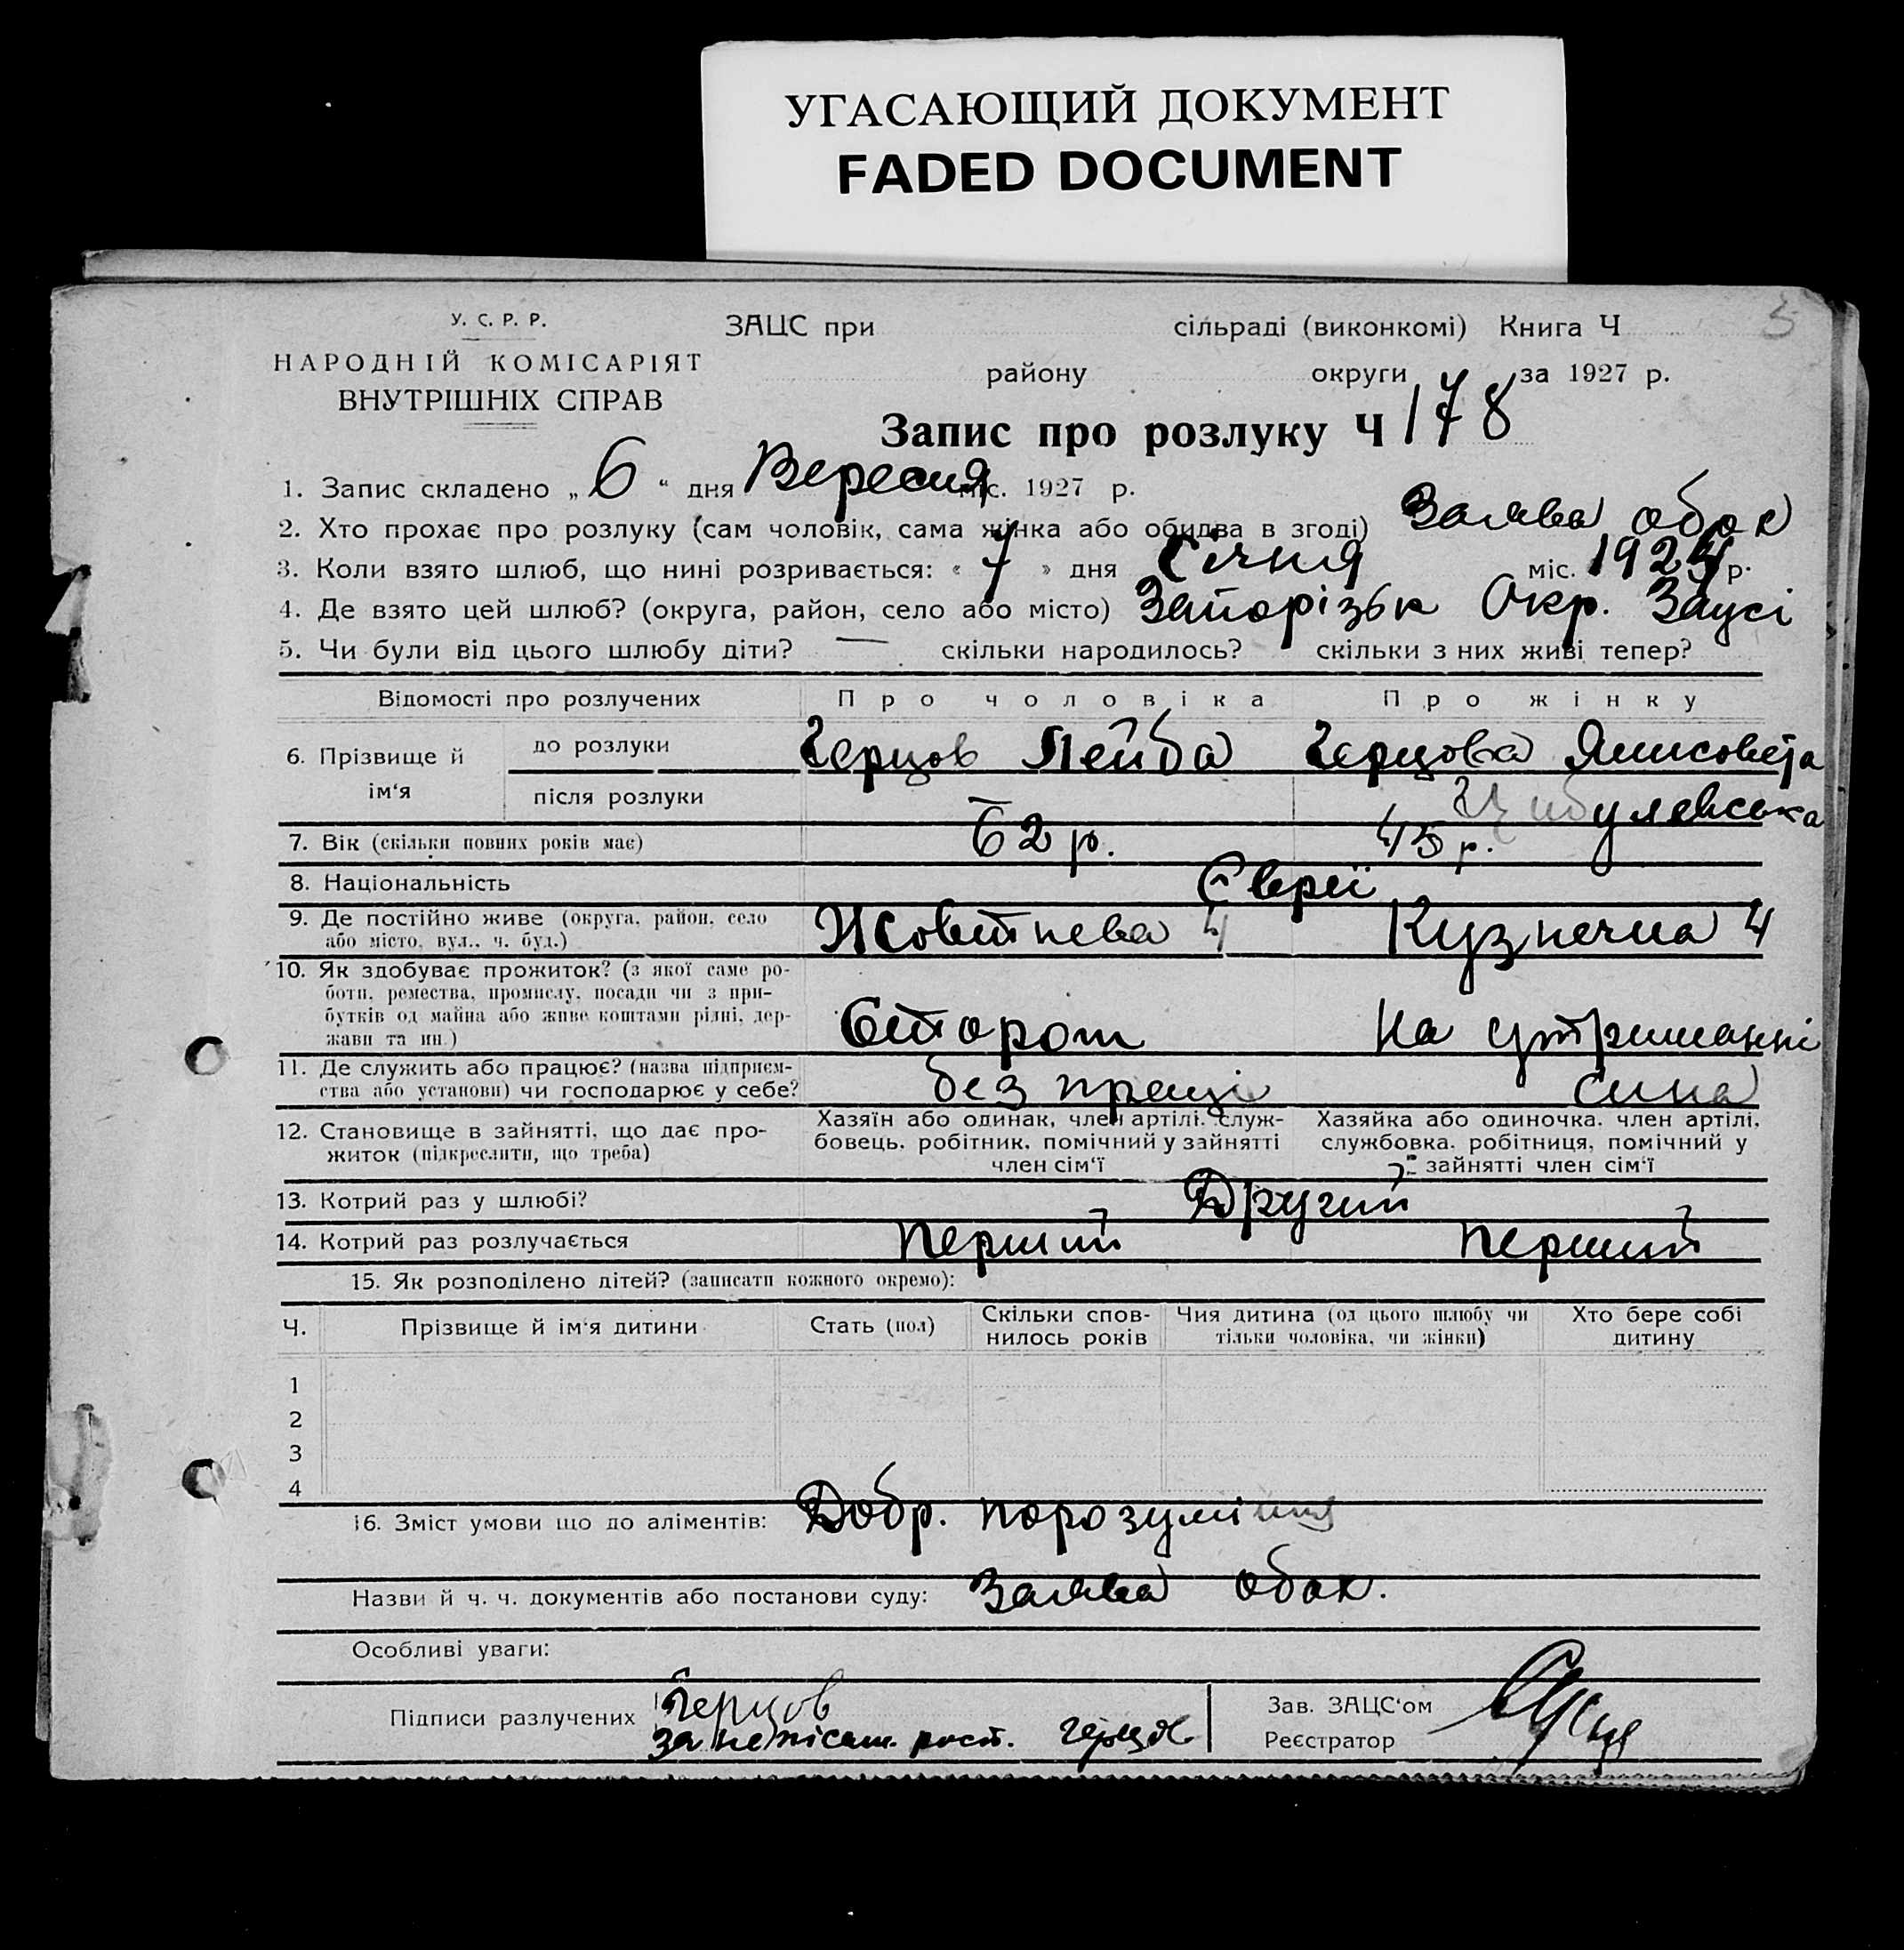 УГАСАЮЩИЙ ДОКУМЕНТ
FADED DOCUMENT
У. С. Р. Р.
НАРОДНІЙ КОМІСАРІЯТ
ВНУТРІШНІХ СПРАВ
ЗАЦС при сільраді (виконкомі) Книга Ч 5
району округи за 1927 р.
Запис про розлуку Ч 178
1. Запис складено „ 6 “ дня Вересня міс. 1927 р.
2. Хто прохає про розлуку (сам чоловік, сама жінка або обидва в згоді) Заява обох
3. Коли взято шлюб, що нині розривається: « 7 » дня Січня міс. 1924 р.
4. Де взято цей шлюб? (округа, район, село або місто) Запорізьк Окр. Загсі
5. Чи були від цього шлюбу діти? — скільки народилось? скільки з них живі тепер?
Відомості про розлучених Про чоловіка Про жінку
6. Прізвище й ім‘я
до розлуки Герцов Лейба Герцова
після розлуки — Цибулевська
7. Вік (скільки повних років має) 62 р. 45 р.
8. Національність Євреї
9. Де постійно живе (округа, район, село або місто, вул., ч. буд.) Жовтнева 4 Кузнечна 4
10. Як здобуває прожиток? (з якої саме роботи, ремества, промислу, посади чи з прибутків од майна або живе коштами рідні, держави та ин.) Сторож На утриманні
11. Де служить або працює? (назва підприємства або установи) чи господарює у себе? без праці сина
12. Становище в зайнятті, що дає прожиток (підкреслити, що треба)
Хазяїн або одинак, член артілі, службовець, робітник, помічний у зайнятті член сім‘ї
Хазяйка або одиночка, член артілі, службовка, робітниця, помічний у зайнятті член сім‘ї
13. Котрий раз у шлюбі? Другий
14. Котрий раз розлучається Перший Перший
15. Як розподілено дітей? (записати кожного окремо):
Ч. Прізвище й ім‘я дитини Стать (пол) Скільки сповнилось років Чия дитина (од цього шлюбу чи тільки чоловіка, чи жінки) Хто бере собі дитину
1
2
3
4
16. Зміст умови що до аліментів: Добр. порозуміння
Назви й ч. ч. документів або постанови суду: Заява обох.
Особливі уваги:
Підписи разлучених Герцов Зав. ЗАЦС‘ом
за Герцов Реєстратор